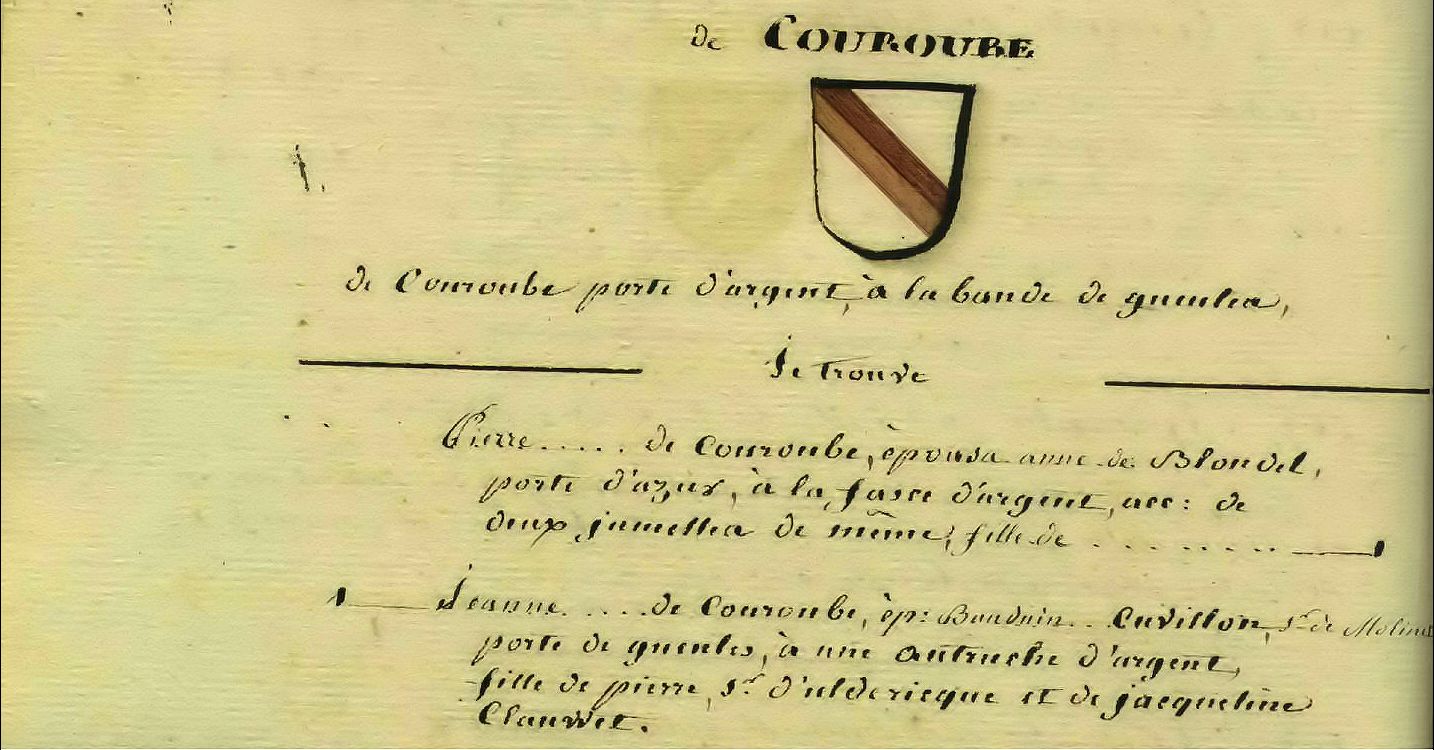 de COUROUBE
de Couroube porte d'argent, à la bande de gueules,
Se trouve
Pierre..... de Couroube, épousa anne de Blondel,
porte d'azur, à la fasce d'argent, acc: de
deux jumelles de même, fille de ........
Jeanne .... de Couroube, ép: Bauduin.. Cuvillon, Sr de Molinel
porte de gueules, à une autruche d'argent,
fille de pierre, Sr d'uldericque et de jacqueline
Clauwet.